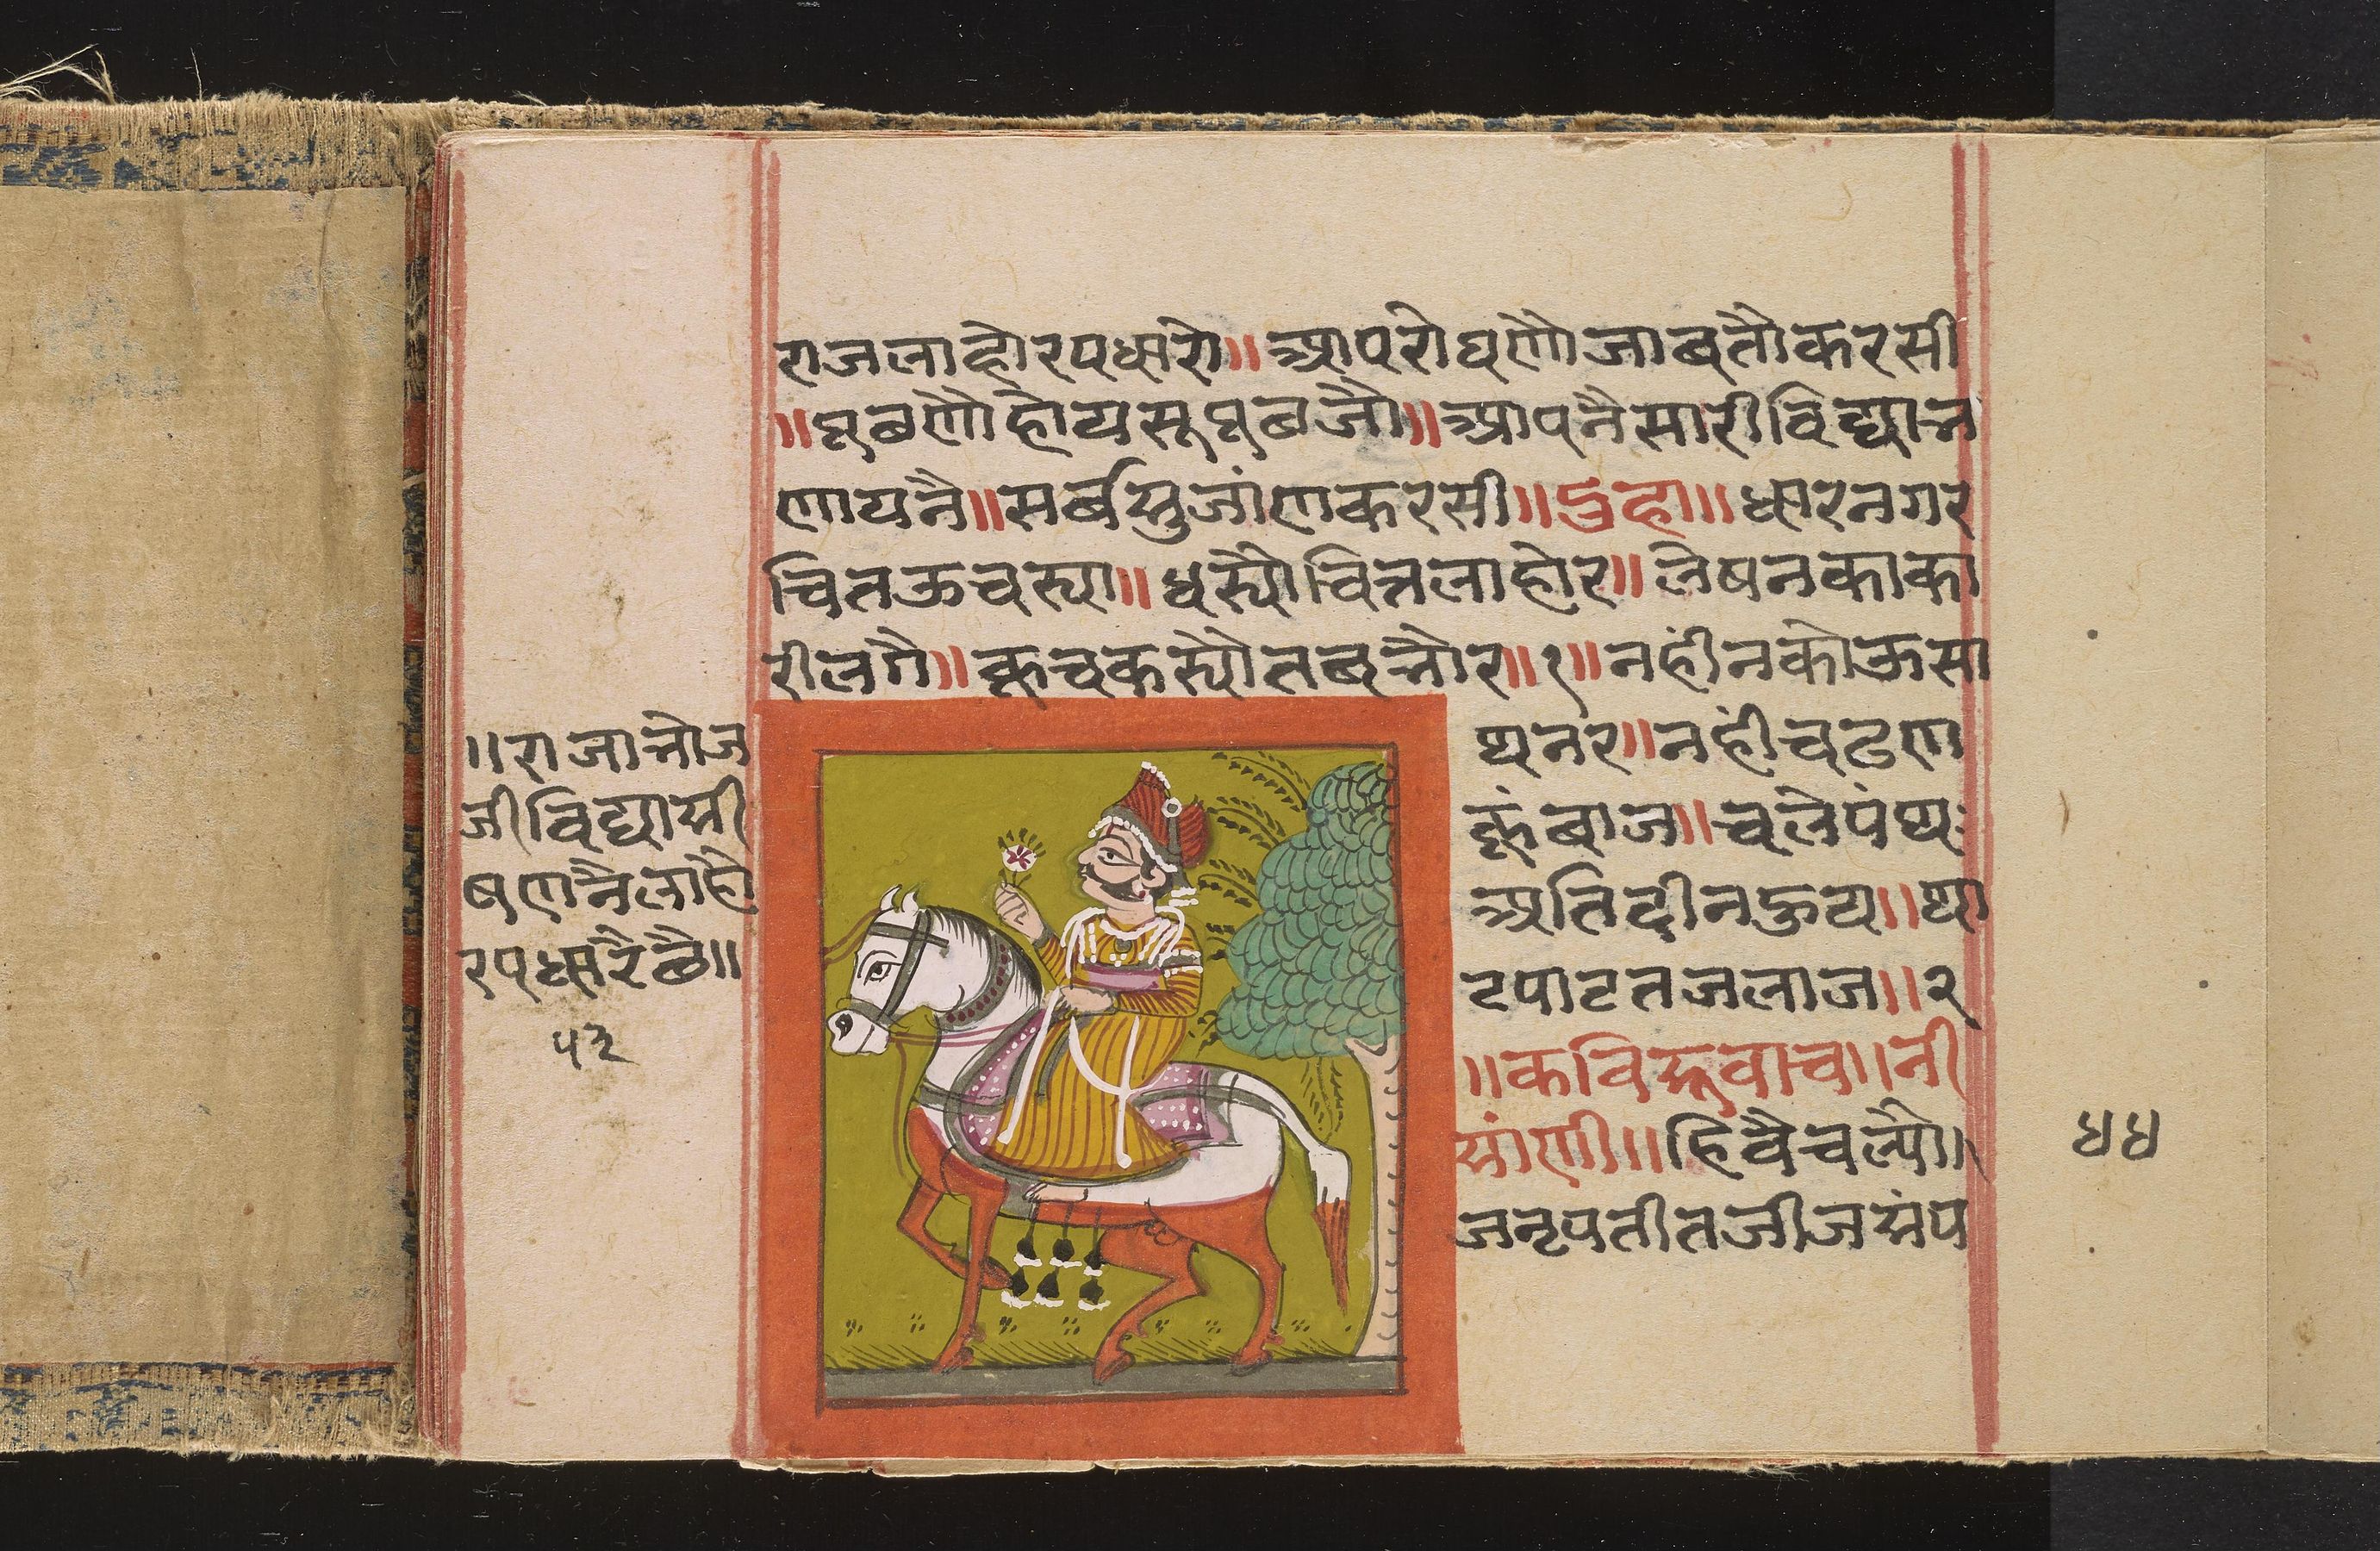 राजलाहोरपधारो॥आपरोघणौजाबतौकरसी
॥षबणौहोयसूषबजौ॥आपनैसारीविद्यान
णायनै॥सर्बसुजांणकरसी॥दुहा॥धारनगर
चितऊचस्या॥धस्यौचितलाहोर॥लेषनकाका
रीलगै॥कूचकस्यौतबनोर॥१॥नहींनकोऊसा
थनर॥नहींचढण
कूंबाज॥चलेपंथ
अतिदीनहुय॥था
टपाटतजलाज॥२
॥कविसूवाच॥नी
सांणी॥हिवैचल्यौ॥
जनृपतीतजीजसंप
॥राजानोज
जीविद्यासी
षणनैलाहौ
रपधारैछै॥
५३
५४